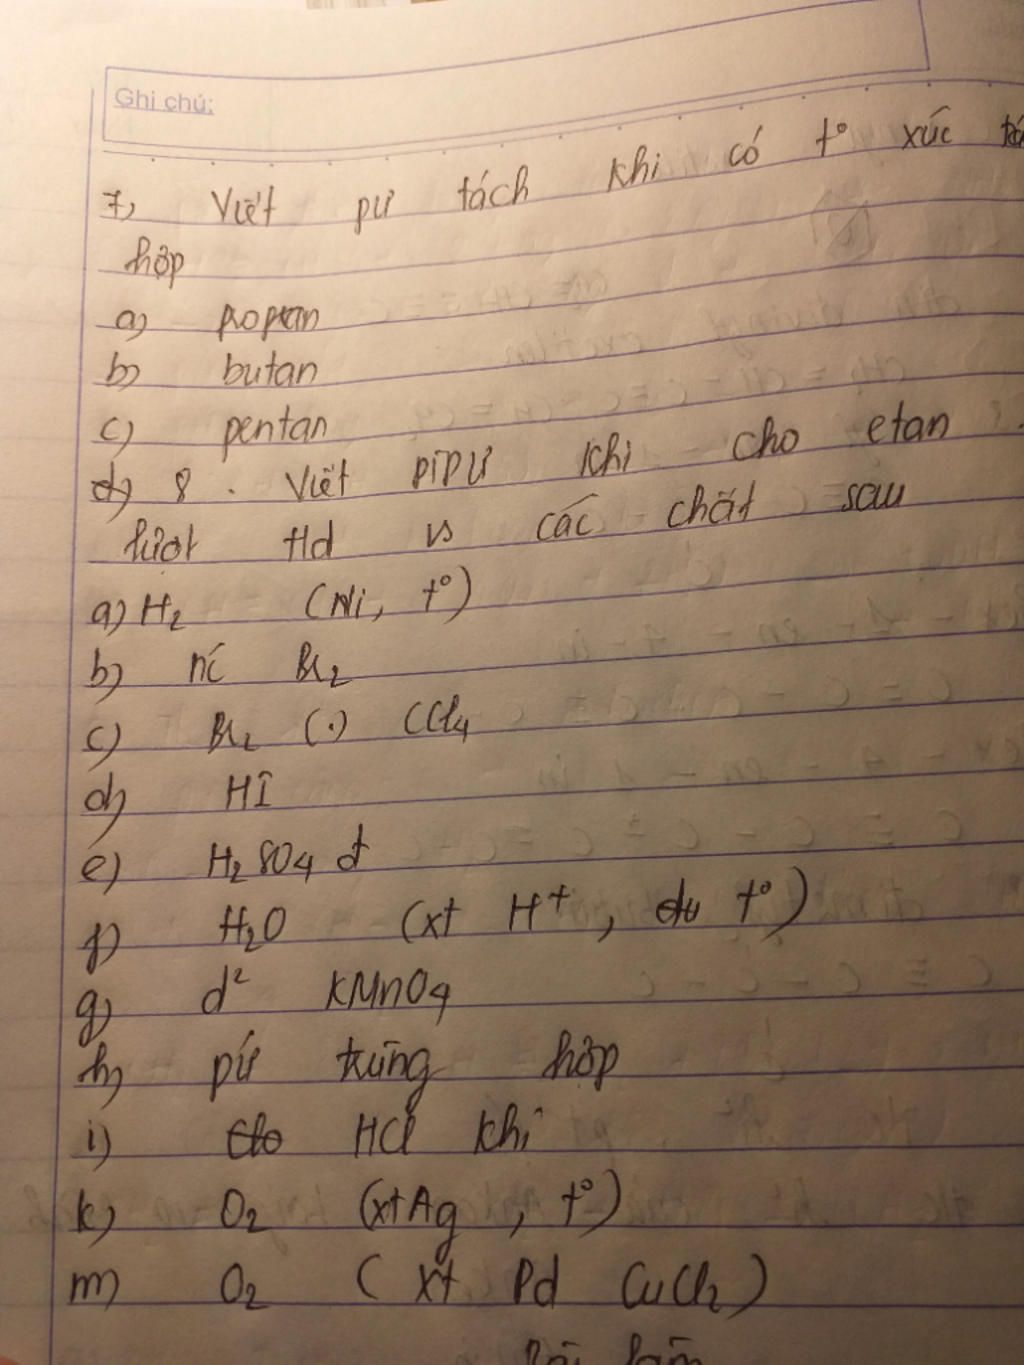 Ghi chú:
7, Viết pư tách khi có t° xúc
hợp
a) propan
b) butan
c) pentan
8. Viết PTPƯ khi cho etan
lượt td vs các chất sau
a) H₂ (Ni, t°)
b) nc Br₂
c) Br₂ (.) CCl₄
d) HI
e) H₂SO₄ đ
f) H₂O (xt H⁺, t°)
g) d² KMnO₄
h) pứ trùng hợp
i) HCl khí
k) O₂ (xt Ag, t°)
m) O₂ (xt Pd CuCl₂)
Bài làm